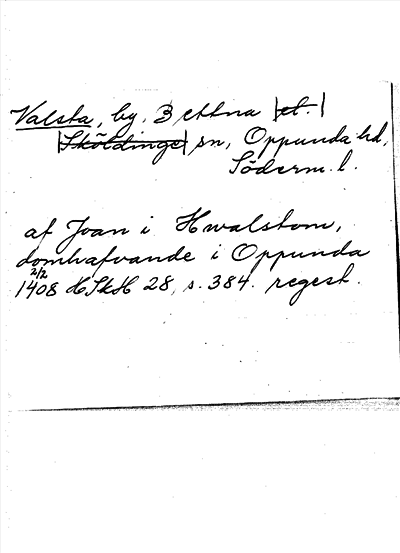 Valsta, by, Bettna |et.|
|Sköldinge| sn, Oppunda hd,
Söderm. l.
af Joan i Hwalstom,
domhafvande i Oppunda
2/2
1408 HSkH 28, s. 384. regest.